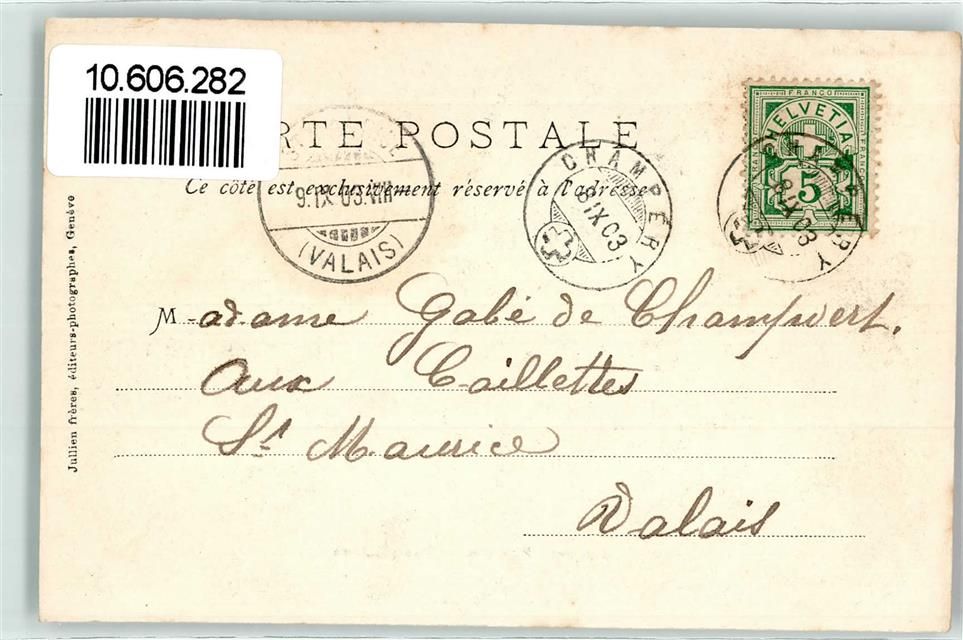 10.606.282
RTE POSTALE
Ce côté est exclusivement réservé à l'adresse
FRANCO
HELVETIA
5
CHAMPÉRY
8 IX 03
CHAMPÉRY
8 IX 03
9. IX 03. VIII
(VALAIS)
Madame Gabé de Champvert.
Aux Caillettes
St Maurice
Valais
Jullien frères, éditeurs-photographes, Genève